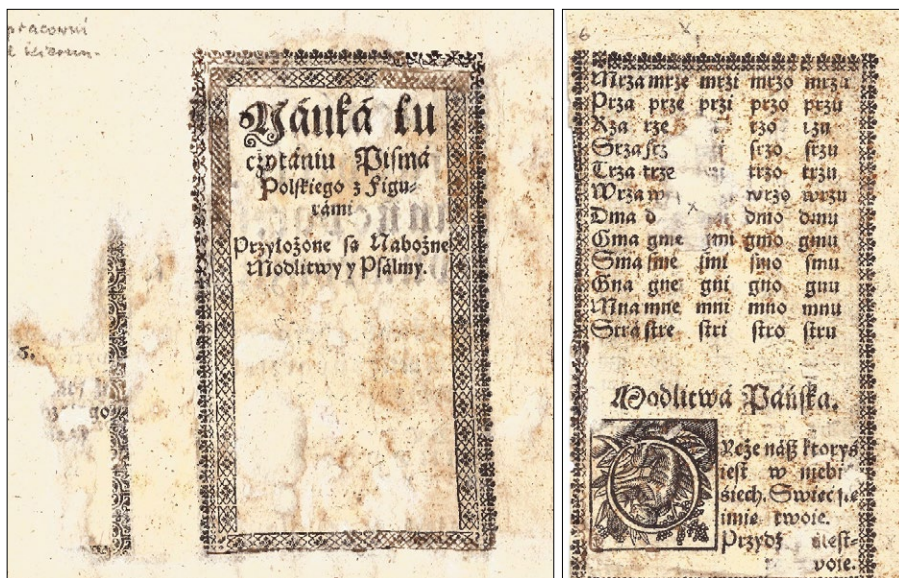 Náuká ku
czytániu Pismá
Polskiego z Figu-
rámi
Przyłożone są Nabożne
Modlitwy y Psálmy.
5.
6
Mrza mrze mrzi mrzo mrzu
Prza prze przi przo przu
Rza rze rzo rzu
Srza srzo srzu
Trza trze trzo trzu
Wrza wrzo wrzu
Dma dmo dmu
Gma gme gmo gmu
Sma sme smi smo smu
Gna gne gni gno gnu
Mna mne mni mno mnu
Strá stre stri stro stru
Modlitwá Páńska.
Ocże náß ktoryś
iest w niebi
śiech. Swiec
imię twoie.
Przydź